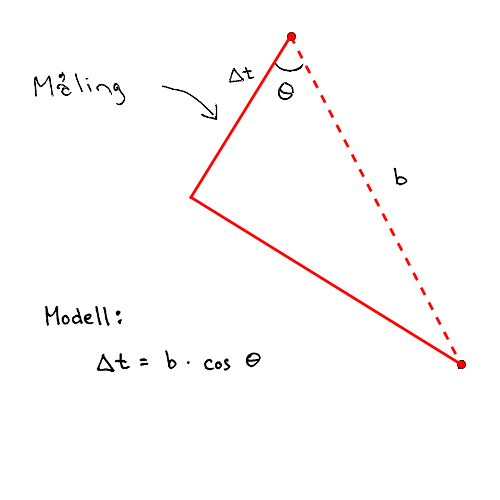 Δt
Måling
θ
b
Modell:
Δt = b · cos θ